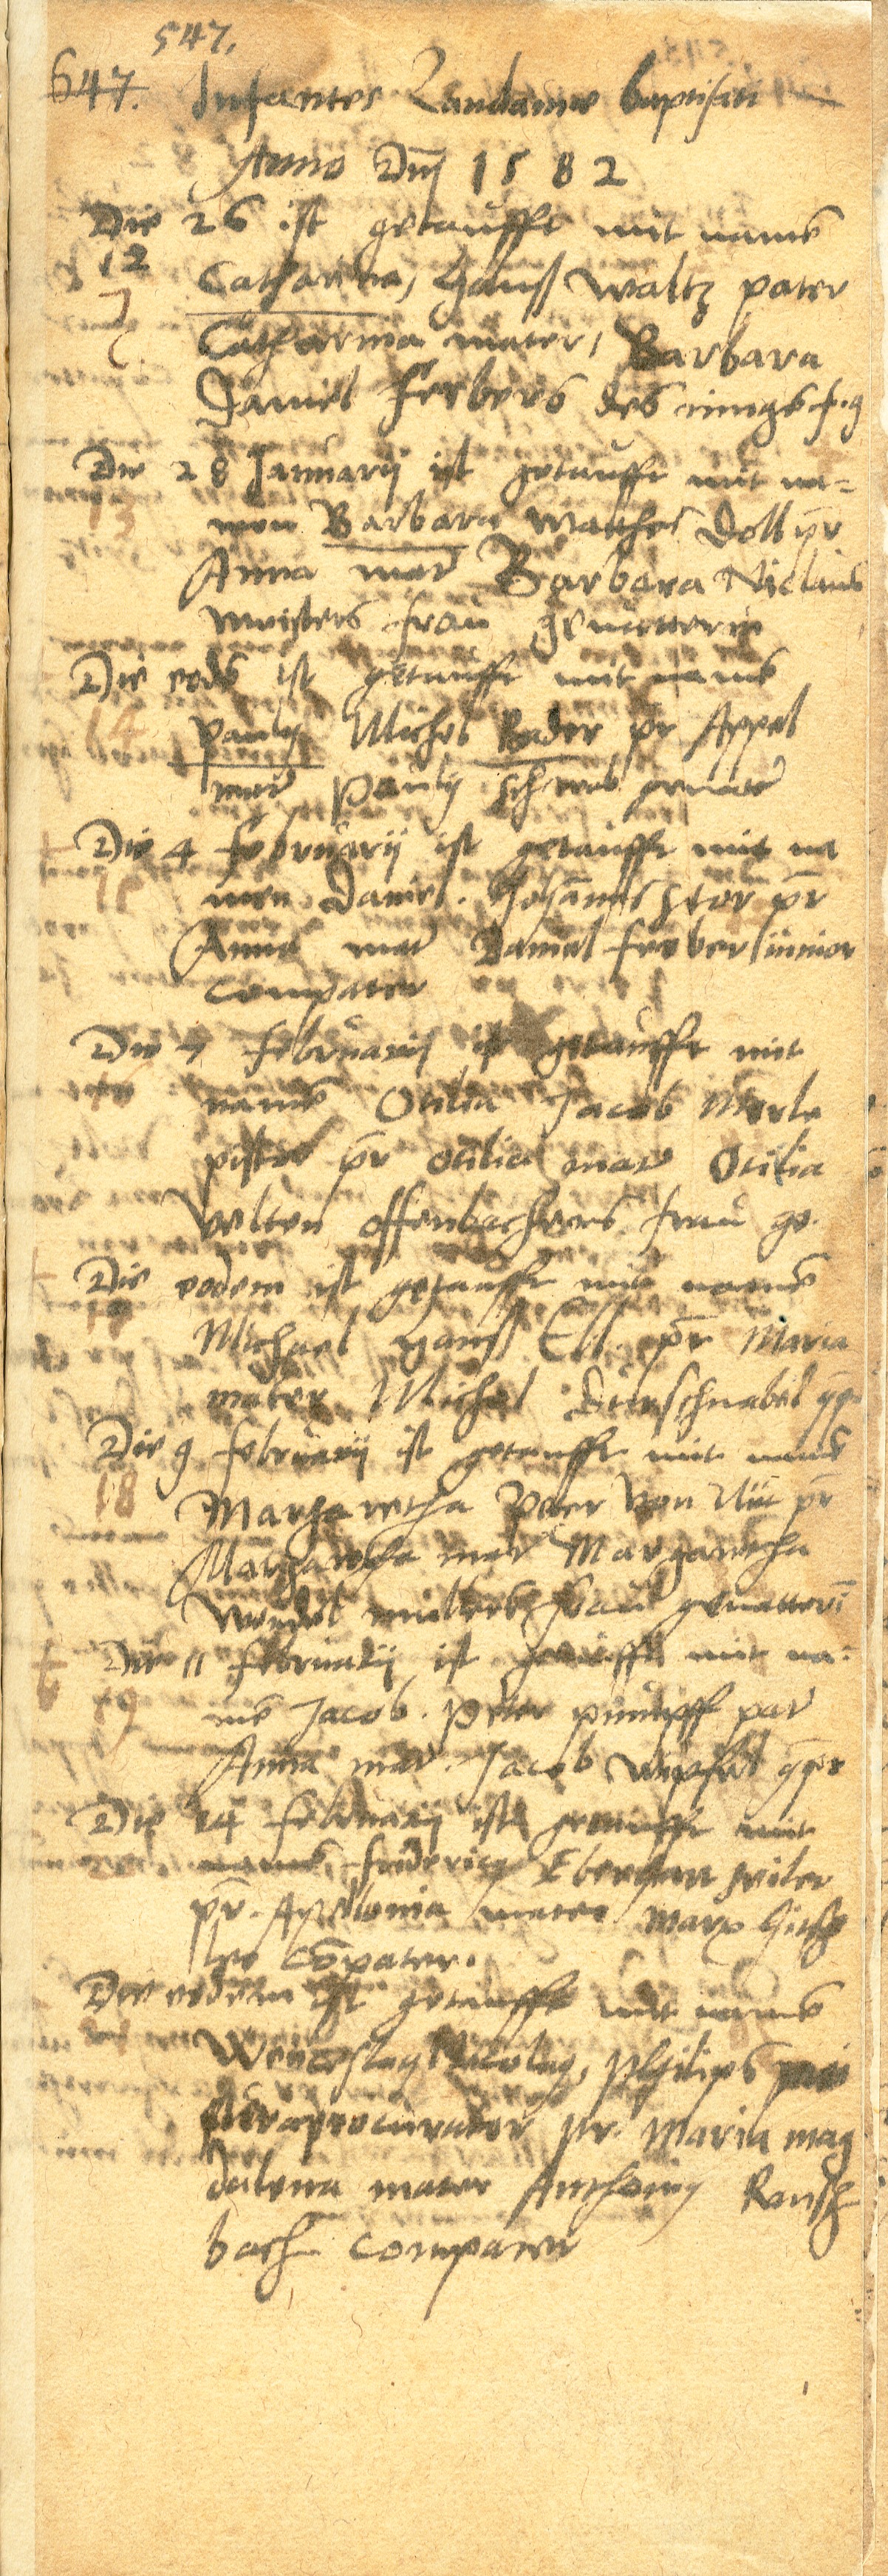 547.
647. Infantes Landauiae baptisati
Anno Dnj 1582
Die 26 ist getaufft mit namē
12 Catharina, Hanß Waltz pater
Catharina mater, Barbara
Daniel Ferbers des jungē f. g
Die 28 Januarij ist getaufft mit na=
13 men Barbara Matthes Doll pr̄
Anna mar̄ Barbara Niclaus
Meisters frau geuatterin
Die eodē ist getaufft mit namē
14 Paulj Michel Bader pr Appel
mar̄ Paulj schwob geuater
Die 4 Februarij ist getaufft mit na
15 men Daniel. Johannes pr̄
Anna mar̄ Daniel Ferber iunior
compater
Die 7 Februarij ist getaufft mit
16 namē Otilia Jacob Merle
pistor pr̄ otilia mar̄ Otilia
Velten offenbachers frau ge.
Die eodem ist getaufft mit namē
17 Michael Hanß Ell pr̄ Maria
mater Michel Durschnabel
Die 9 Februarij ist getaufft mit namē
18 Margaretha Peter Von pr̄
Margaretha mar̄ Margaretha
Wendel müllers frau geuatterī
Die 11 Februarij ist getaufft mit na=
19 mē Jacob. Peter pumpff par̄
Anna mar̄. Jacob Wipfel
Die 14 Februarij ist getaufft mit
namē Friderich Eberhart seiler
pr̄. Appollonia mater Marx
compater.
Die eodem ist getaufft mit namē
Wenceslaus Nicolaus, Philips
procurator pr. Maria mag
dalena mater Anthonij Reusch
bach compater